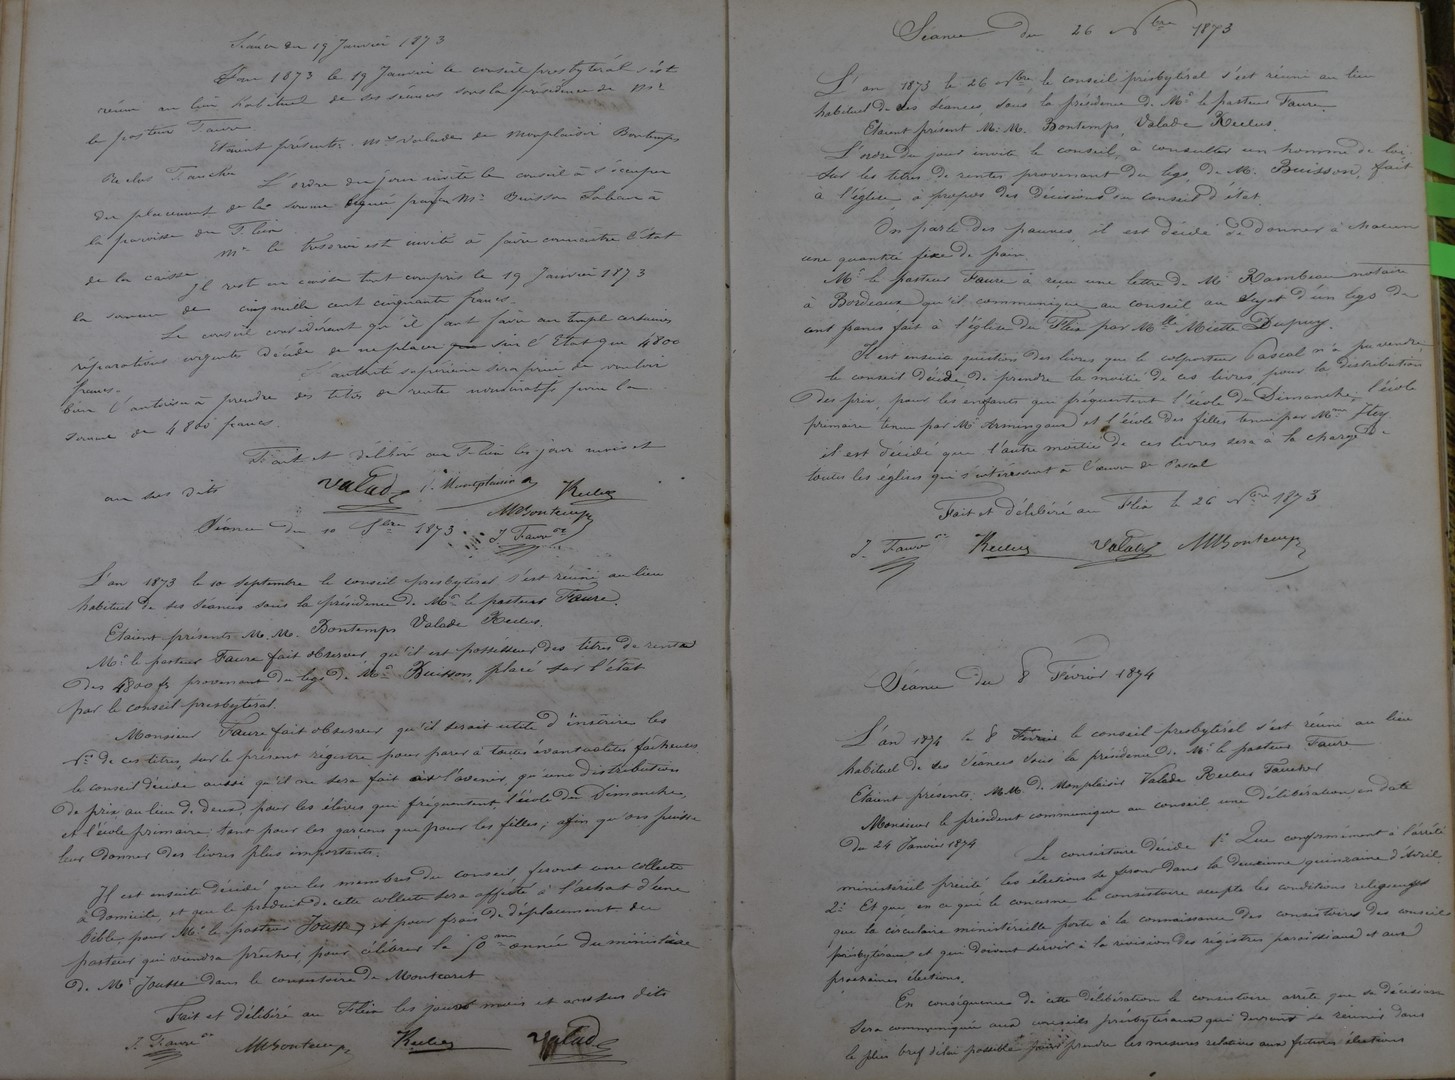 Séance du 19 Janvier 1873
L'an 1873 le 19 Janvier le conseil presbytéral s'est
réuni au lieu habituel de ses séances sous la présidence de Mr
le pasteur Faure.
Etaient présents Mrs Valade de Monplaisir Bontemps
Reclus Faucher
L'ordre du jour invite le conseil à s'occuper
du placement de la somme léguée par feu Mr Buisson à
la paroisse du Fleix
Mr le trésorier est invité à faire connaitre l'état
de la caisse
Il reste en caisse tout compris le 19 Janvier 1873
la somme de cinq mille cent cinquante francs.
Le conseil considérant qu'il faut faire au temple certaines
réparations urgentes décide de ne placer que sur l'Etat que 4800
francs.
L'autorité supérieure sera priée de vouloir
bien l'autoriser à prendre des titres de rente nominatifs pour la
somme de 4800 francs.
Fait et délibéré au Fleix les jour mois et
an sus dits
Valade Monplaisir Reclus
MBontemps
J. Faure
Séance du 10 7bre 1873
L'an 1873 le 10 septembre le conseil presbytéral s'est réuni au lieu
habituel de ses séances sous la présidence de Mr le pasteur Faure.
Etaient présents M. M. Bontemps Valade Reclus.
Mr le pasteur Faure fait observer qu'il est possesseur des titres de rente
des 4800 fr provenant du legs de Mr Buisson, placé sur l'état
par le conseil presbytéral.
Monsieur Faure fait observer qu'il serait utile d'inscrire les
Nos de ces titres, sur le présent régistre pour parer à toutes éventualités fâcheuses.
le conseil décide aussi qu'il ne sera fait à l'avenir, qu'une distribution
de prix au lieu de deux, pour les élèves qui fréquentent, l'école du Dimanche,
et l'école primaire, tant pour les garçons que pour les filles; afin qu'on puisse
leur donner des livres plus importants.
Il est ensuite décidé que les membres du conseil, feront une collecte
à domicile, et que le produit de cette collecte sera affecté à l'achat d'une
bible, pour Mr le pasteur Jousse, et pour frais de déplacement du
pasteur qui viendra prêcher pour célébrer la 50me année du ministère
de Mr Jousse dans le consistoire de Montcaret
Fait et délibéré au Fleix les jours mois et an sus dits
J. Faure MBontemps Reclus Valade
Séance du 26 Nbre 1873
L'an 1873 le 26 Nbre le conseil presbytéral s'est réuni au lieu
habituel de ses séances, sous la présidence de Mr le pasteur Faure
Etaient présent M. M. Bontemps, Valade Reclus.
L'ordre du jour invite le conseil, à consulter un homme de loi
sur les titres de rentes provenant du legs de M. Buisson, fait
à l'église, à propos des décisions du conseil d'état.
On parle des pauvres, il est décidé de donner à chacun
une quantité fixe de pain
Mr le pasteur Faure à reçu une lettre de Mr Rambeau notaire
à Bordeaux qu'il communique au conseil au sujet d'un legs de
cent francs fait à l'église du Fleix par Mlle Miette Dupuy.
Il est ensuite question des livres que le colporteur Pascal n'a pu vendre,
le conseil décide, de prendre la moitié de ces livres, pour la distribution
des prix, pour les enfants qui fréquentent l'école du Dimanche, l'école
primaire tenue par Mr Armingaud et l'école des filles tenue par Mme
il est décidé que l'autre moitié de ces livres sera à la charge de
toutes les églises qui s'intéressent à l'œuvre de Pascal
Fait et délibéré au Fleix le 26 Nbre 1873
J. Faure Reclus Valade MBontemps
Séance du 8 Février 1874
L'an 1874 le 8 Février le conseil presbytéral s'est réuni au lieu
habituel de ses séances sous la présidence de Mr le pasteur Faure
Etaient présents. M. M. de Monplaisir Valade Reclus Faucher
Monsieur le président communique au conseil une délibération, en date
du 24 Janvier 1874
Le consistoire décide 1º Que conformément à l'arrêté
ministériel précité les élections se feront dans la deuxième quinzaine d'Avril,
2º Et que en ce qui le concerne le consistoire accepte les conditions religieuses
que la circulaire ministérielle porte à la connaissance des consistoires des conseils
presbytéraux et qui doivent servir à la revision des régistres paroissiaux et aux
prochaines élections.
En conséquence de cette délibération le consistoire arrête que sa décision
sera communiquée aux conseils presbytéraux qui devront se réunir dans
le plus bref délai possible pour prendre les mesures relatives aux futures élections